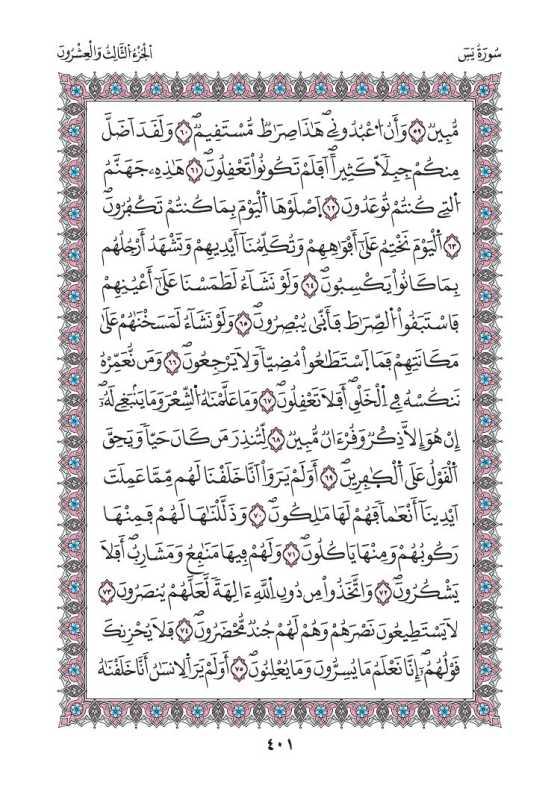 سُورَةُ يَسٓ
اَلْجُزْءُ الثَّالِثُ وَالْعِشْرُونَ
مُّبِينٌ ٥٩ وَأَنُ اُعْبُدُونِي هَٰذَا صِرَٰطٌ مُّسْتَقِيمٌ ٦٠ وَلَقَدَ اَضَلَّ
مِنكُمْ جِبِلّٗا كَثِيراً اَفَلَمْ تَكُونُواْ تَعْقِلُونَ ٦١ هَٰذِهِۦ جَهَنَّمُ
اُلتِي كُنتُمْ تُوعَدُونَ ٦٢ اَصْلَوْهَا اَلْيَوْمَ بِمَا كُنتُمْ تَكْفُرُونَ
٦٣ اَلْيَوْمَ نَخْتِمُ عَلَىٰٓ أَفْوَٰهِهِمْ وَتُكَلِّمُنَآ أَيْدِيهِمْ وَتَشْهَدُ أَرْجُلُهُم
بِمَا كَانُواْ يَكْسِبُونَ ٦٤ وَلَوْ نَشَآءُ لَطَمَسْنَا عَلَىٰٓ أَعْيُنِهِمْ
فَاسْتَبَقُواْ اُلصِّرَٰطَ فَأَنّ۪ىٰ يُبْصِرُونَ ٦٥ وَلَوْ نَشَآءُ لَمَسَخْنَٰهُمْ عَلَىٰ
مَكَانَتِهِمْ فَمَا اَسْتَطَٰعُواْ مُضِيّاً وَلَا يَرْجِعُونَ ٦٦ وَمَن نُّعَمِّرْهُ
نَنكُسْهُ فِي اِلْخَلْقِۖ أَفَلَا تَعْقِلُونَ ٦٧ وَمَا عَلَّمْنَٰهُ اُلشِّعْرَ وَمَا يَنۢبَغِي لَهُۥٓۖ
إِنْ هُوَ إِلَّا ذِكْرٌ وَقُرْءَانٌ مُّبِينٌ ٦٨ لِّتُنذِرَ مَن كَانَ حَيّاً وَيَحِقَّ
اَلْقَوْلُ عَلَى اَلْكٰ۪فِرِينَ ٦٩ أَوَلَمْ يَرَوَاْ اَنَّا خَلَقْنَا لَهُم مِّمَّا عَمِلَتَ
اَيْدِينَآ أَنْعَٰماً فَهُمْ لَهَا مَٰلِكُونَ ٧٠ وَذَلَّلْنَٰهَا لَهُمْ فَمِنْهَا
رَكُوبُهُمْ وَمِنْهَا يَاكُلُونَ ٧١ وَلَهُمْ فِيهَا مَنَٰفِعُ وَمَشَارِبُۖ أَفَلَا
يَشْكُرُونَ ٧٢ وَاتَّخَذُواْ مِن دُونِ اِللَّهِ ءَالِهَةً لَّعَلَّهُمْ يُنصَرُونَ ٧٣
لَا يَسْتَطِيعُونَ نَصْرَهُمْ وَهُمْ لَهُمْ جُندٌ مُّحْضَرُونَ ٧٤ فَلَا يُحْزِنكَ
قَوْلُهُمُۥٓۖ إِنَّا نَعْلَمُ مَا يُسِرُّونَ وَمَا يُعْلِنُونَ ٧٥ أَوَلَمْ يَرَ اَلِانسَٰنُ أَنَّا خَلَقْنَٰهُ
٤٠١